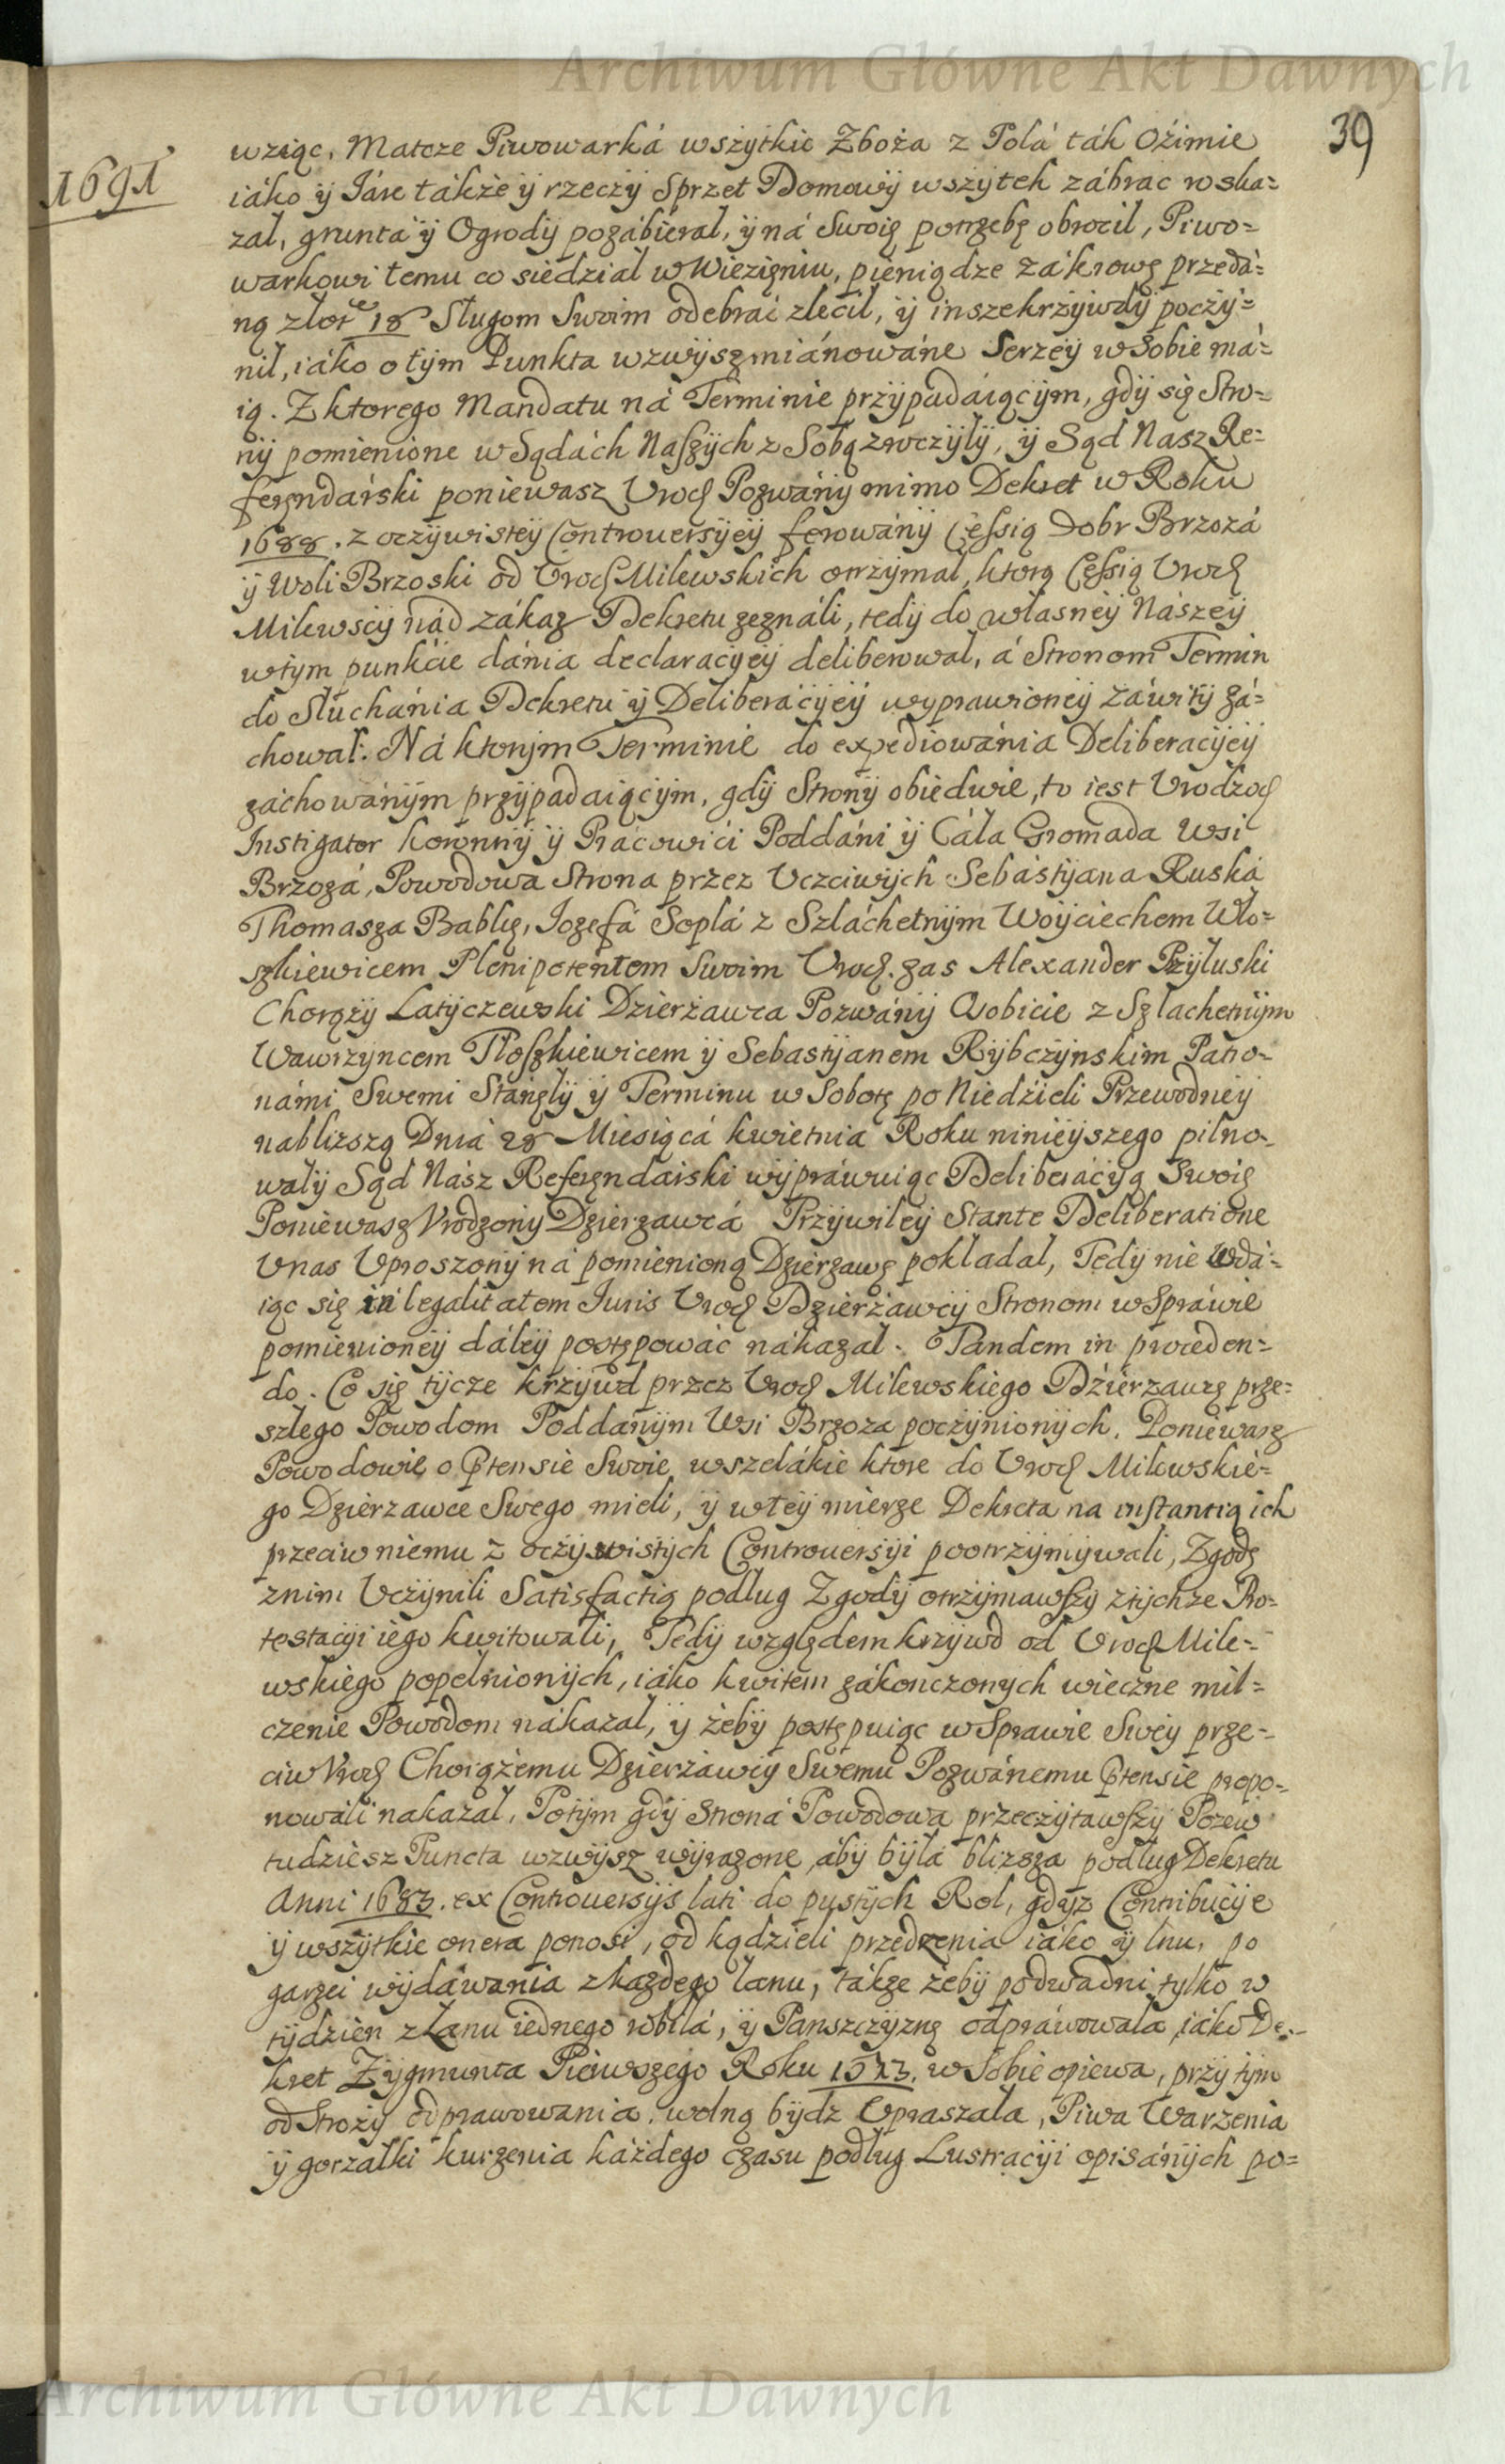 Archiwum Główne Akt Dawnych
39
1691
wziąc, Matcze Piwowarká wszytkie Zboża z Polá ták Oźimie
iáko ÿ Járe tákże ÿ rzeczÿ Sprzet Domowÿ wszytek zábrac roska=
zal, grunta ÿ Ogrodÿ pozábierał, ÿ ná Swoię potrzebę obrocil, Piwo=
warkowi temu co siedział w Wiezięniu, pieniądze zákrowę przedá=
ną złote 18 Sługom Swoim odebrać zlecil, ÿ insze krzÿwdÿ poczÿ=
nil, iáko o tÿm Punkta wzwÿsz miánowáne Serzeÿ w Sobie má=
ią. Z ktorego Mandatu ná Terminie przÿpadáiącÿm, gdÿ się Stro=
nÿ pomienione w Sądách Naszÿch z Sobą zroczÿlÿ, ÿ Sąd Nasz Re=
feręndarski poniewasz Uroḍ Pozwánÿ mimo Dekret w Roku
1688. z oczÿwisteÿ Controuersÿeÿ ferowánÿ Cessią Dobr Brzozá
ÿ Woli Brzoski od Uroḍ Milewskich otrzÿmal, ktorą Cessią Uroḍ
Milewscÿ nád zákaz Dekretu zeználi, tedÿ do własneÿ Nászeÿ
w tÿm punkćie dánia declaracÿeÿ deliberowal, á Stronom Termin
do Słuchánia Dekretu ÿ Deliberacÿeÿ wyprawioneÿ záwitÿ zá=
chowal. Ná ktorÿm Terminie do expediowánia Deliberacÿeÿ
záchowánÿm przÿpadaiącÿm, gdÿ Stronÿ obiedwie, to iest Urodzoḍ
Instigator koronnÿ ÿ Prácowići Poddáni ÿ Cála Gromada Wsi
Brzozá, Powodowa Strona przez Uczciwÿch Sebástÿana Ruská
Thomasza Bablę, Iozefá Soplá z Szláchetnÿm Woÿciechem Wło=
szkiewicem Plenipotentem Swoim Uroḍ. zas Alexander Przÿluski
Chorązÿ Latÿczewski Dzierżawca Pozwánÿ Osobicie z Szlachetnÿm
Wawrzÿncem Płoszkiewicem ÿ Sebastÿanem Rÿbczÿnskim Patro=
námi Swemi Stánęlÿ ÿ Terminu w Sobotę po Niedźieli Przewodneÿ
nablizszą Dniá 28 Miesiącá kwietnia Roku ninieÿszego pilno=
walÿ Sąd Nász Referęndarski wÿpráwuiąc Deliberácÿą Swoię
Poniewasz Urodzonÿ Dzierzawcá Przÿwileÿ Stante Deliberatione
U nas Uproszonÿ ná pomienioną Dzierzawę pokladal, Tedÿ nie wdá=
iąc się in legalitatem Iuris Uroḍ Dzierżawcÿ Stronom w Spráwie
pomienioneÿ dáleÿ postępowáć nákazal. Tandem in proceden=
do. Co się tÿcze krzÿwd przez Uroḍ Milewskiego Dźierzawcę prze=
szlego Powodom Poddanÿm Wsi Brzoza poczÿnionÿch. Poniewasz
Powodowie o Ptensie Swoie wszelákie ktore do Uroḍ Milewskie=
go Dzierzawce Swego mieli, ÿ w teÿ mierze Dekreta na instantią ich
przeciw niemu z oczÿwistÿch Controuersÿi pootrzÿmÿwali, Zgodę
z nim Uczÿnili Satisfactią podlug Zgodÿ otrzÿmawszÿ z tÿchze Pro=
testacÿi iego kwitowali, Tedÿ względem krzÿwd od Uroḍ Mile=
wskiego popelnionÿch, iáko kwitem zákonczonych wieczne mil=
czenie Powodom nákazal, ÿ żebÿ postępuiąc w Sprawie Sweÿ prze=
ciw Uroḍ Chorążemu Dzierżawcÿ Swemu Pozwánemu Ptensie propo=
nowáli nakazal, Potÿm gdÿ Stroná Powodowa przeczÿtawszÿ Pozew
tudziesz Puncta wzwÿsz wÿrazone, abÿ bÿlá blizsza podlug Dekretu
Anni 1683. ex Controuersÿs lati do pustÿch Rol, gdÿz Contribucÿe
ÿ wszÿtkie onera ponosi, od kądzieli przedzenia iáko ÿ lnu, po
garzci wÿdáwania z kazdego lanu, tákze żebÿ podwadni tylko w
tÿdzien z Lanu iednego robilá, ÿ Panszczÿznę odpráwowala, iáko De=
kret Zÿgmunta Pierwszego Roku 1523. w Sobie opiewa, przÿ tÿm
od Strożÿ odprawowania. wolną bÿdz Upraszala, Piwa Warzenia
ÿ gorzalki kurzenia káżdego czasu podlug Lustracÿi opisánÿch po=
Archiwum Główne Akt Dawnych